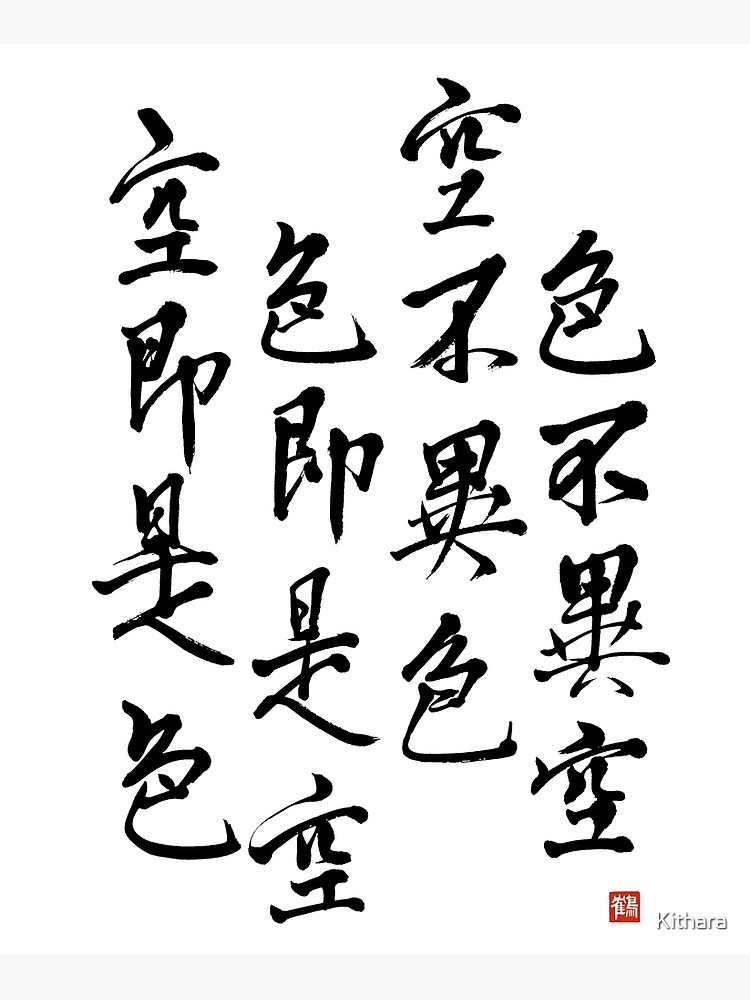 色不異空
空不異色
色即是空
空即是色
鶴
Kithara